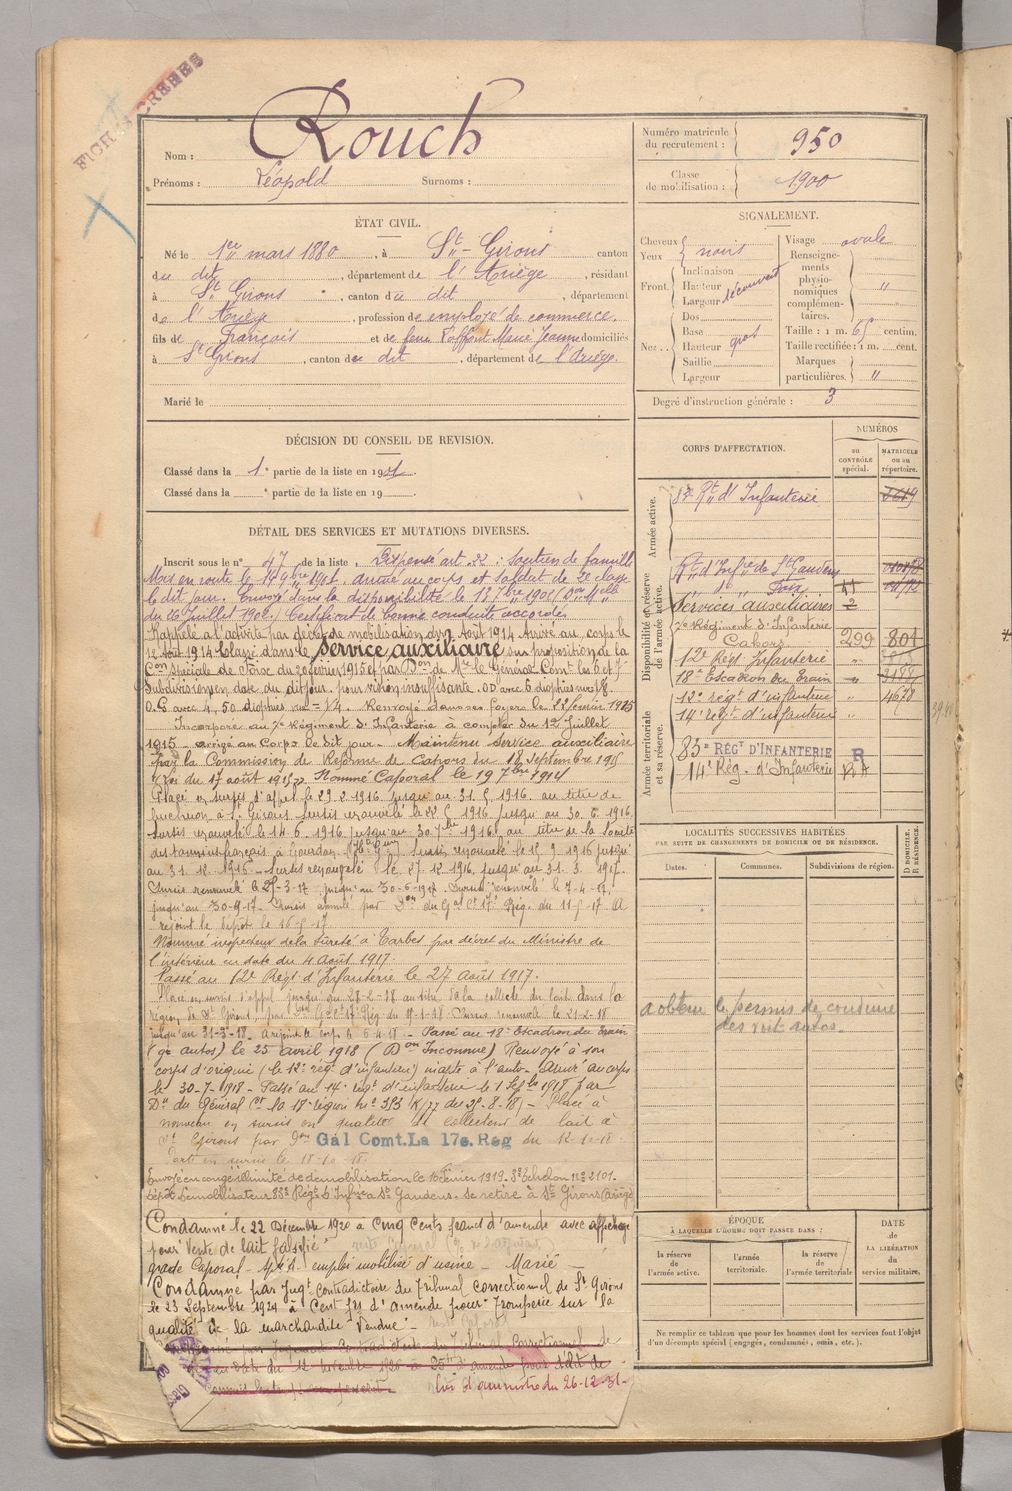 FICHES CREEES
Nom : Rouch
Prénoms : Léopold Surnoms :
Numéro matricule du recrutement : 950
Classe de mobilisation : 1900
ÉTAT CIVIL.
Né le 1er mars 1880, à St-Girons canton
du dit, département de l'Ariège, résidant
à St Girons, canton du dit, département
de l'Ariège, profession de employé de commerce,
fils de François et de feue Marie Jeanne domiciliés
à St Girons, canton du dit, département de l'Ariège.
Marié le
SIGNALEMENT.
Cheveux noirs
Yeux
Front. Inclinaison
Hauteur découvert
Largeur
Nez. Dos
Base
Hauteur gros
Saillie
Largeur
Visage ovale
Renseignements physionomiques complémentaires. "
Taille : 1 m. 65 centim.
Taille rectifiée : 1 m. cent.
Marques particulières. "
Degré d'instruction générale : 3
DÉCISION DU CONSEIL DE REVISION.
Classé dans la 1e partie de la liste en 1901.
Classé dans la e partie de la liste en 19
DÉTAIL DES SERVICES ET MUTATIONS DIVERSES.
Inscrit sous le n° 47 de la liste. Dispensé art. 22 : Soutien de famille
Mis en route le 14 9bre 1901, arrivé au corps et soldat de 2e classe
le dit jour. Envoyé dans la disponibilité le
du 26 Juillet 1902. Certificat de bonne conduite accordé.
Rappelé à l'activité par décret de mobilisation du Août 1914 Arrivé au corps le
12 Août 1914 Classé dans le Service auxiliaire sur proposition de la
Con Spéciale de Foix du 20 février 1915 et par Don de Mr le Général Comt les 6 et 7
Subdivisions en date du dit jour. pour vision insuffisante. O.D avec 6 dioptries
O.G avec 4,50 dioptries vue = 1/4. Renvoyé dans ses foyers le 22 février 1915
Incorporé au 7e Régiment d'Infanterie à compter du 1er Juillet
1915 arrivé au Corps le dit jour. Maintenu Service auxiliaire
par la Commission de Réforme de Cahors du 16 Septembre 1915
Loi du 17 août 1915 Nommé Caporal le 19 7bre 1914
Placé en sursis d'appel le 29.2.1916 jusqu'au 31.5.1916. au titre de
bucheron à St Girons Sursis renouvelé le 22 5 1916 jusqu'au 30.6.1916.
Sursis renouvelé le 14.6.1916 jusqu'au 30 7bre 1916. au titre de la Société
des tannins français, à Gourdan Sursis renouvelé le 15 9 1916 jusqu'
au 31.12.1916 - Sursis renouvelé le 27.12.1916, jusqu'au 31.3.1917.
Sursis renouvelé le 25-3-17 jusqu'au 30-6-17. Sursis renouvelé le 7-4-17
jusqu'au 30-9-17. Sursis annulé par Don du Gal Ct 17e Rég. du 11-5-17 A
rejoint le dépôt le 16-5-17
Nommé inspecteur de la Sûreté à Tarbes par décret du Ministre de
l'intérieur en date du 4 Août 1917.
Passé au 12e Régt d'Infanterie le 27 Août 1917.
Placé en sursis d'appel jusqu'au 28-2-18 au titre de la collecte du lait dans la
région de St Girons, par Don Gal Ct 17e Rég du 17-1-18 Sursis renouvelé le 21-2-18
jusqu'au 31-3-18. A rejoint le corps le 6-4-18 - Passé au 18e Escadron du Train
autos) le 25 avril 1918 (Don Inconnue) Renvoyé à son
corps d'origine (le 12e régt d'infanterie) inapte à l'auto- Arrivé au corps
le 30-7-1918 - Passé au 14e régt d'infanterie le 1 Septbre 1918 par
Don du Général Ct la 17e région n° 353 K/77 du 25-8-18) - Placé à
nouveau en sursis en qualité de collecteur de lait à
St Girons par Don Gal Comt.La 17e.Rég du 12-10-18
Parti en sursis le 18-10-18.
Envoyé en congé illimité de démobilisation le 16 février 1919. 3e échelon n° 2101.
Dépôt Démobilisateur 83e Régt d'Infie à St Gaudens. Se retire à St Girons (Ariège)
Condamné le 22 Décembre 1920 à Cinq Cents francs d'amende avec affichage
pour "Vente de lait falsifié"
grade Caporal - emploi mobilisé d'usine - Marié -
Condamné par Jugt contradictoire du Tribunal correctionnel de St Girons
le 23 Septembre 1924 à Cent frs d'amende pour "Tromperie sur la
qualité de la marchandise vendue" -
par jugement contradictoire du Tribunal Correctionnel de
en date du 12 novembre 1926 à 25 frs d'amende pour délit de
loi d'amnistie du 26-12-31-
CORPS D'AFFECTATION.
NUMÉROS
au CONTRÔLE spécial.
MATRICULE ou au répertoire.
Armée active.
83e Rt d'Infanterie
Disponibilité et réserve de l'armée active.
Rt d'Infie de St Gaudens
" d° " Foix
Services auxiliaires
7e Régiment d'Infanterie
Cahors 299 804
12e Régt Infanterie "
18e Escadron du Train "
12e régt d'infanterie " 4678
14e régt d'infanterie "
Armée territoriale et sa réserve.
83e RÉGt D'INFANTERIE R
14e Rég. d'Infanterie R.A
LOCALITÉS SUCCESSIVES HABITÉES
PAR SUITE DE CHANGEMENTS DE DOMICILE OU DE RÉSIDENCE.
Dates. Communes. Subdivisions de région.
D DOMICILE. R RÉSIDENCE.
a obtenu le permis de conduire
des voit autos.
ÉPOQUE
À LAQUELLE L'HOMME DOIT PASSER DANS :
la réserve de l'armée active.
l'armée territoriale.
la réserve de l'armée territoriale
DATE de LA LIBÉRATION du service militaire.
Ne remplir ce tableau que pour les hommes dont les services font l'objet
d'un décompte spécial ( engagés, condamnés, omis, etc. ).